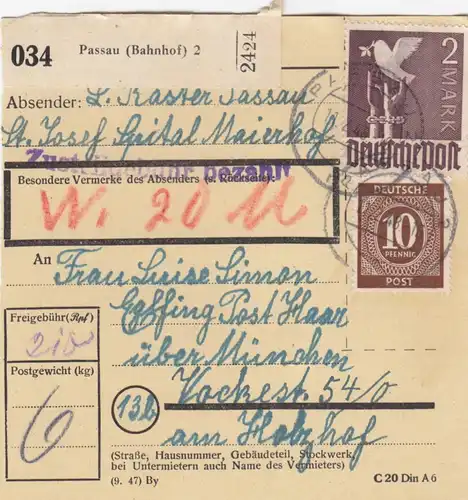 034 Passau (Bahnhof) 2 2424
2 MARK
Deutsche Post
Absender: L. Kaster Passau
St. Josef Spital Maierhof
Zustellgebühr bezahlt
Besondere Vermerke des Absenders (s. Rückseite):
W. 20 M
DEUTSCHE
10
PFENNIG
POST
An
Frau Luise Simon
Eglfing Post Haar
über München
Vockest. 54/0
am Holzhof
Freigebühr (Rpf)
210
Postgewicht (kg)
6
13b
(Straße, Hausnummer, Gebäudeteil, Stockwerk,
bei Untermietern auch Name des Vermieters)
(9. 47) By
C 20 Din A 6